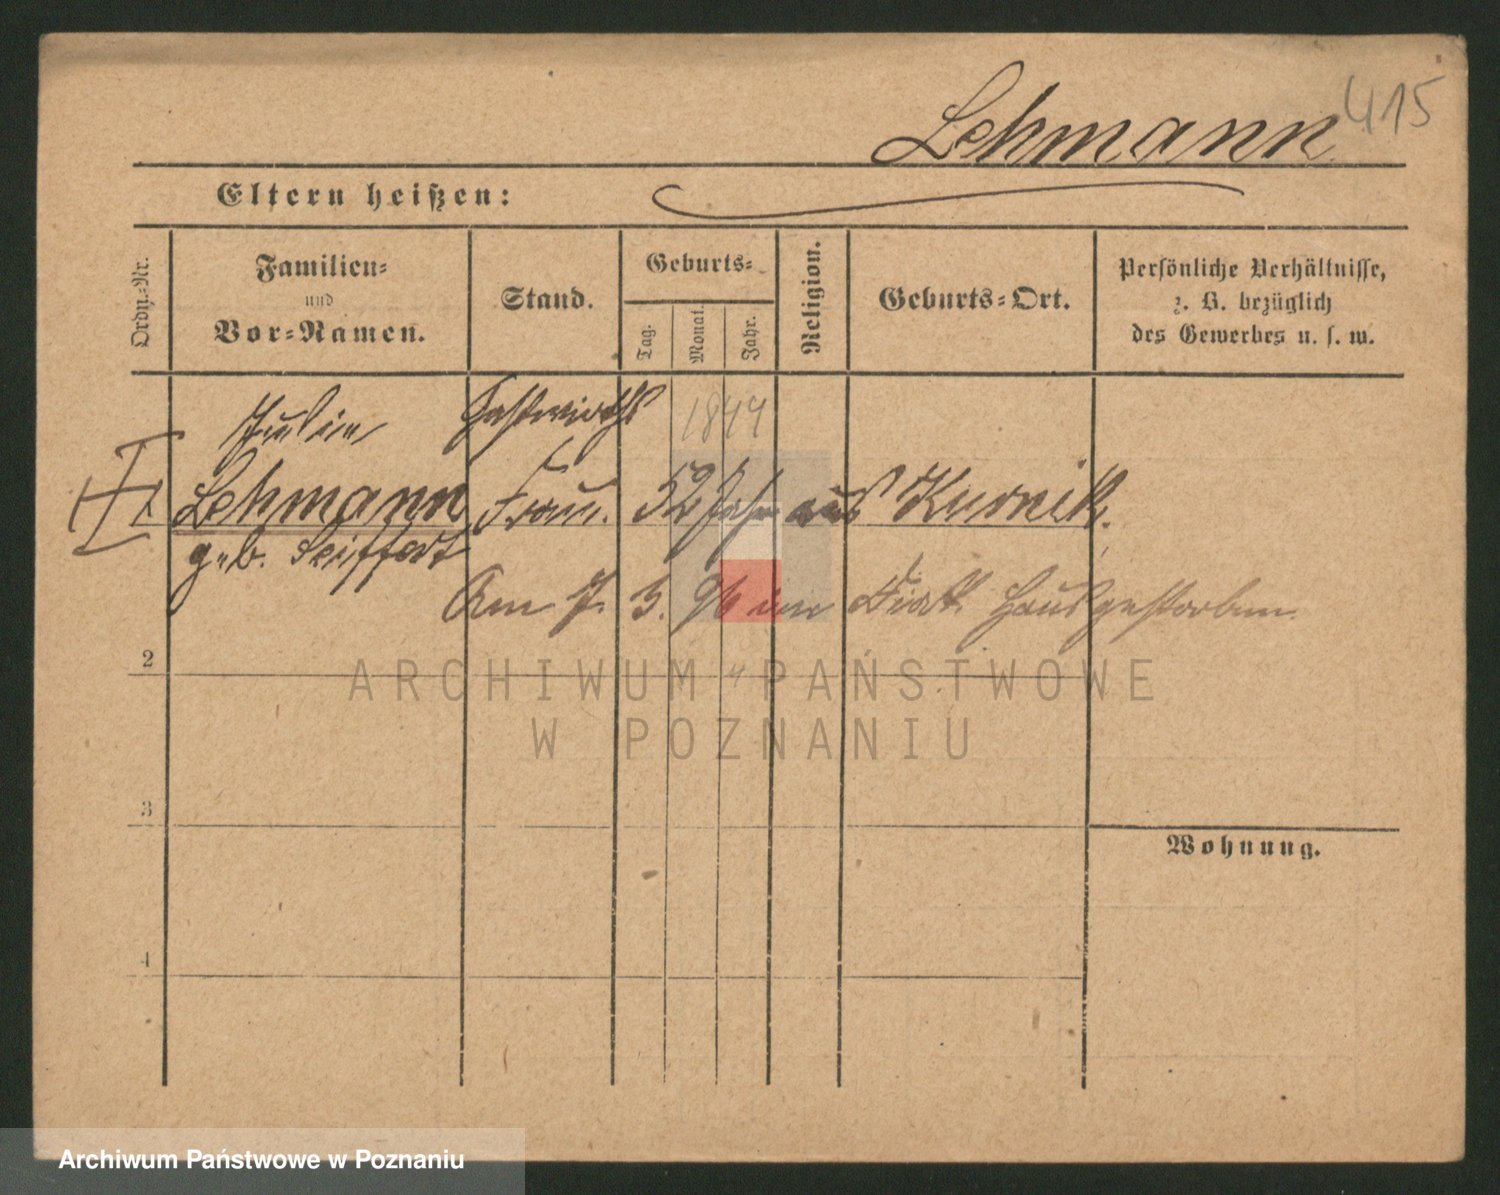 415
Lehmann
Eltern heißen:
Ordn.-Nr.
Familien-
und
Vor-Namen.
Stand.
Geburts-
Tag.
Monat.
Jahr.
Religion.
Geburts-Ort.
Persönliche Verhältnisse,
z. B. bezüglich
des Gewerbes u. s. w.
Gastwirths
1844
Lehmann Frau. 52 Jahr aus Kurnik.
geb. Seiffert
Am 7. 3. 96 im Diak. Haus gestorben.
2
ARCHIWUM PAŃSTWOWE
W POZNANIU
3
Wohnung.
4
Archiwum Państwowe w Poznaniu